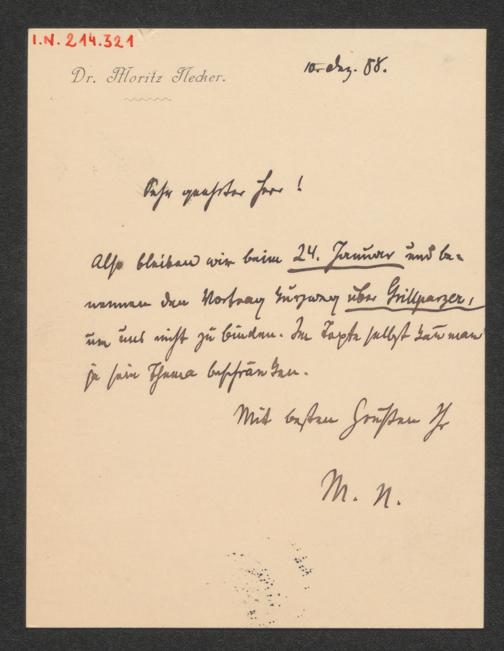 I.N. 214.321
Dr. Moritz Necker.
10. Dez. 88.
Sehr geehrter Herr!
Also bleiben wir beim 24. Januar und be-
nennen den Vortrag kurzweg über Grillparzer,
um uns nicht zu binden. Im Texte selbst kann man
ja sein Thema beschränken.
Mit besten Grüßen Ihr
M. N.